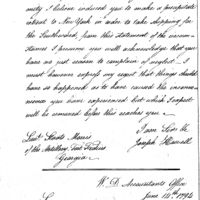 unity I believe induced you to make a precipitate
retreat to New York in order to take shipping for
the Southward, from this statement of the circum-
stances I presume you will acknowledge that you
have no just reason to complain of neglect — I
must however express my regret that things should
have so happened as to have caused the inconve-
nience you have experienced but which I expect
will be removed before this reaches you
I am Sir &c
Joseph Howell
Lieut
of the Artillery
Georgia
W. D. Accountants Office
June 14th 1794